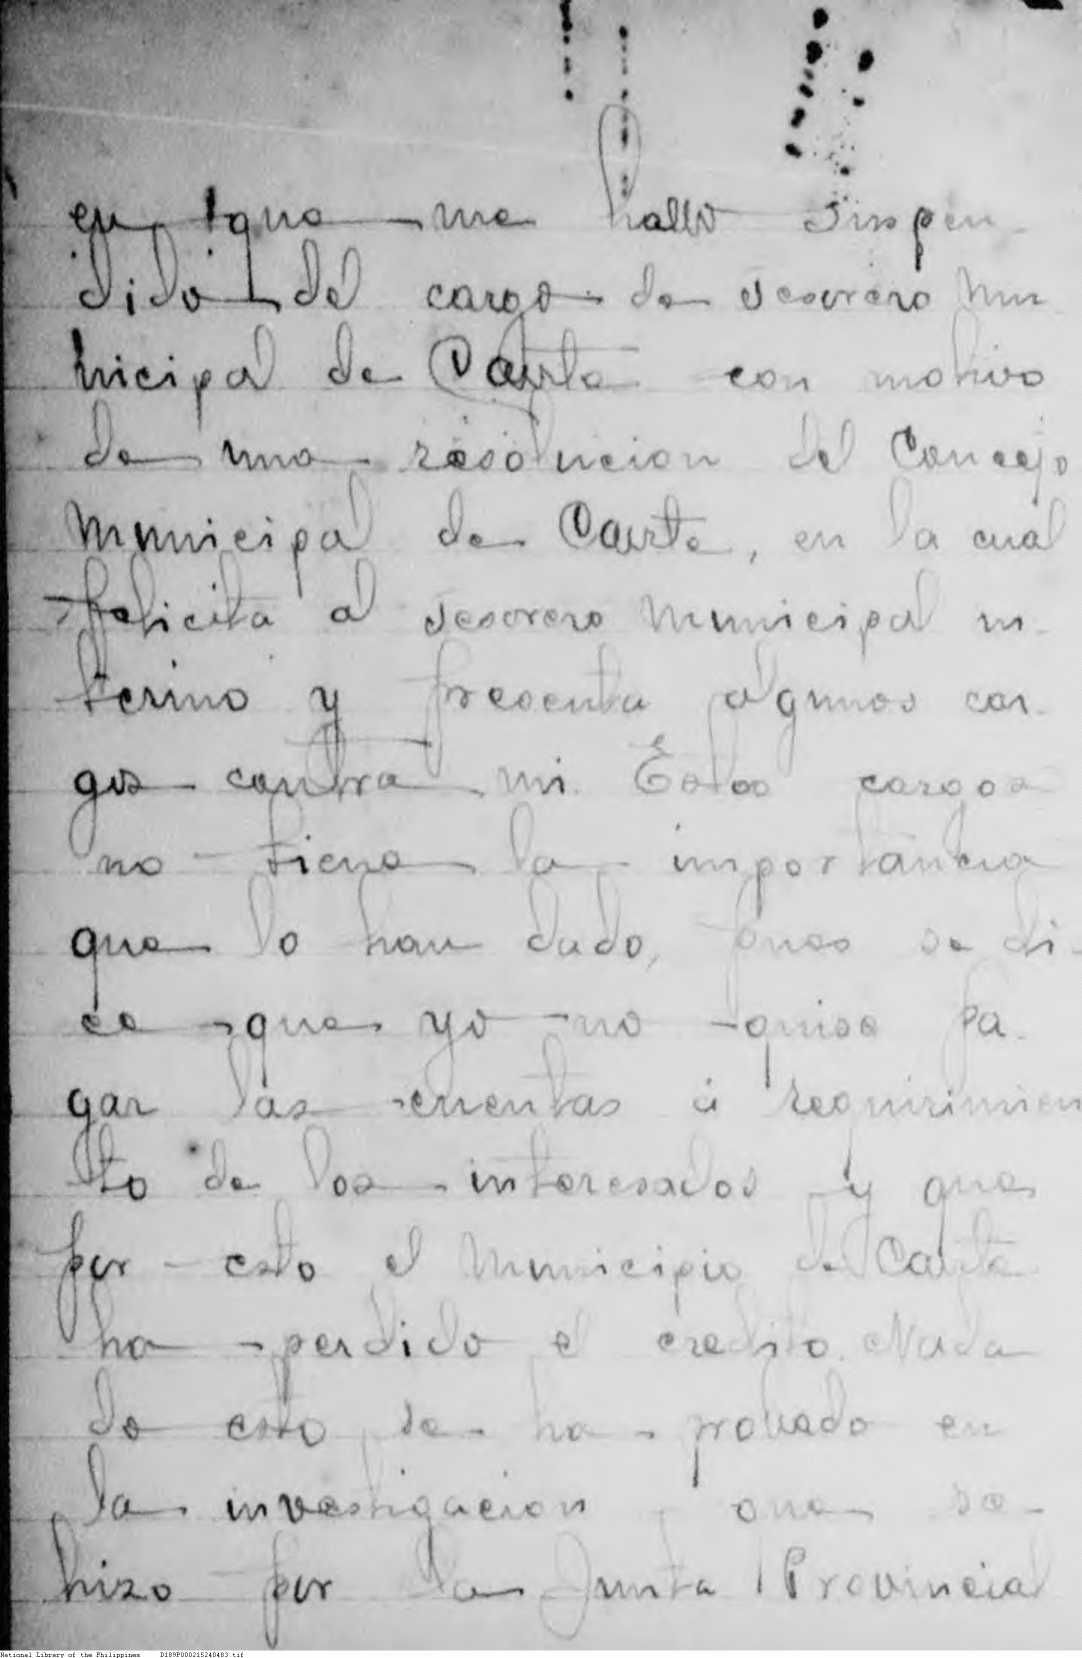 en que me hallo suspen-
dido del cargo de tesorero mu
nicipal de Cainta con motivo
de una resolucion del Concejo
Municipal de Cainta, en la cual
felicita al tesorero municipal in-
terino y presenta algunos car-
gos contra mi. Estos cargos
no tiene la importancia
que lo han dado, pues se di-
ce que yo no quise pa-
gar las cuentas á requirimien
to de los interesados y que
por esto el municipio de Cainta
ha perdido el credito. Nada
de esto se ha probado en
la investigacion que se
hizo por la Junta Provincial
National Library of the Philippines D189P000215240403.tif